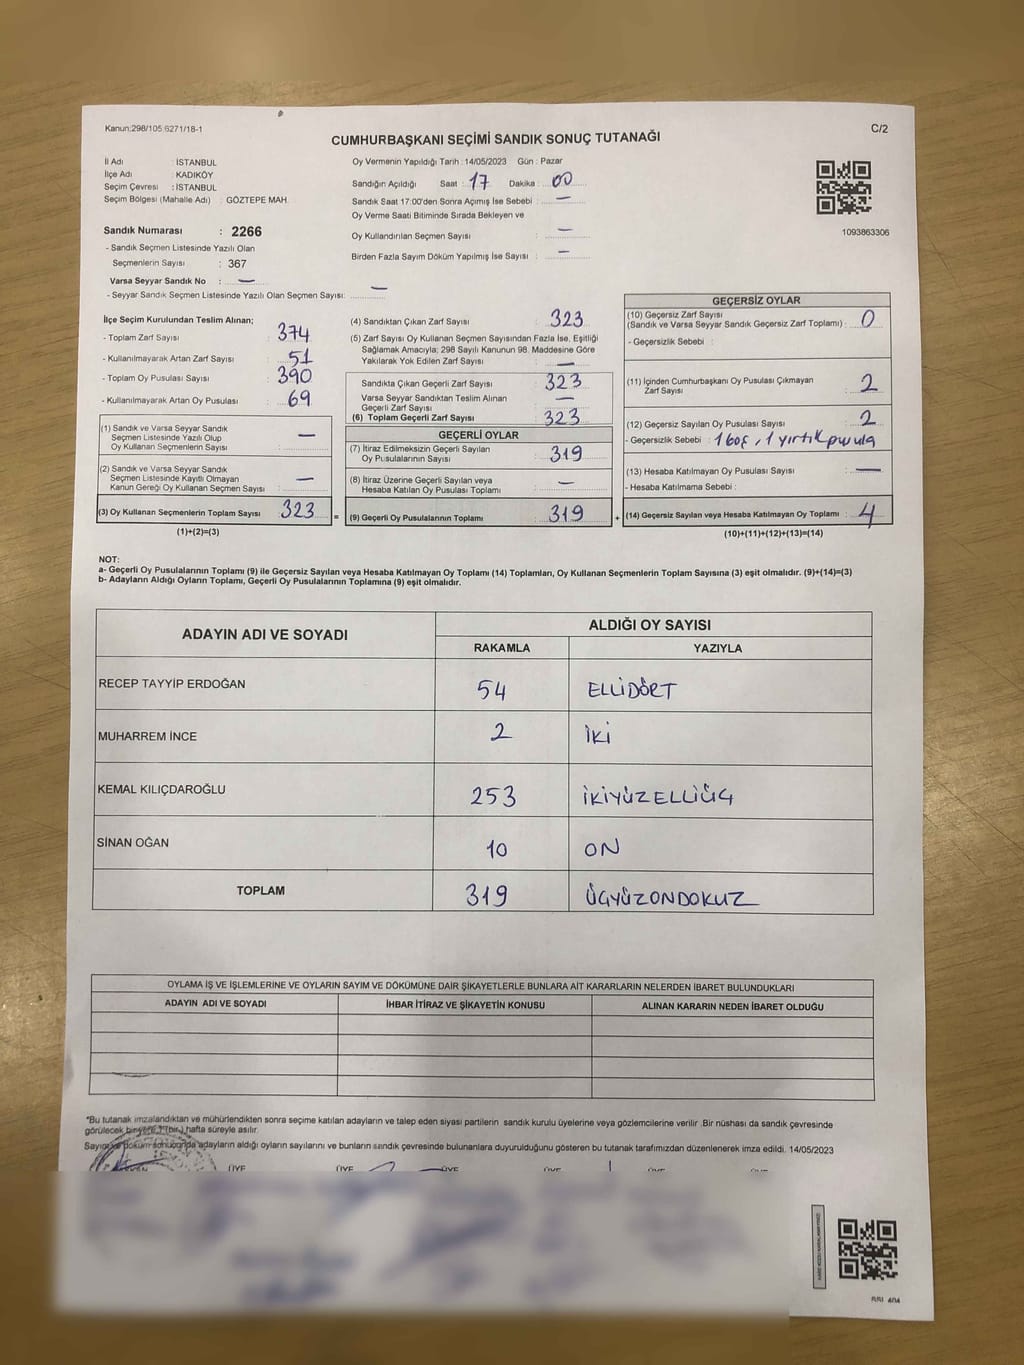 Kanun:298/105 6271/18-1
C/2
CUMHURBAŞKANI SEÇİMİ SANDIK SONUÇ TUTANAĞI
İl Adı : İSTANBUL
İlçe Adı : KADIKÖY
Seçim Çevresi : İSTANBUL
Seçim Bölgesi (Mahalle Adı) : GÖZTEPE MAH.
Sandık Numarası : 2266
- Sandık Seçmen Listesinde Yazılı Olan
Seçmenlerin Sayısı : 367
Varsa Seyyar Sandık No : —
- Seyyar Sandık Seçmen Listesinde Yazılı Olan Seçmen Sayısı: —
Oy Vermenin Yapıldığı Tarih : 14/05/2023 Gün : Pazar
Sandığın Açıldığı Saat : 17 Dakika : 00
Sandık Saat 17:00'den Sonra Açımış İse Sebebi : —
Oy Verme Saati Bitiminde Sırada Bekleyen ve
Oy Kullandırılan Seçmen Sayısı : —
Birden Fazla Sayım Döküm Yapılmış İse Sayısı : —
1093863306
İlçe Seçim Kurulundan Teslim Alınan;
- Toplam Zarf Sayısı : 374
- Kullanılmayarak Artan Zarf Sayısı : 51
- Toplam Oy Pusulası Sayısı : 390
- Kullanılmayarak Artan Oy Pusulası : 69
(1) Sandık ve Varsa Seyyar Sandık
Seçmen Listesinde Yazılı Olup
Oy Kullanan Seçmenlerin Sayısı : —
(2) Sandık ve Varsa Seyyar Sandık
Seçmen Listesinde Kayıtlı Olmayan
Kanun Gereği Oy Kullanan Seçmen Sayısı : —
(3) Oy Kullanan Seçmenlerin Toplam Sayısı : 323 =
(1)+(2)=(3)
(4) Sandıktan Çıkan Zarf Sayısı : 323
(5) Zarf Sayısı Oy Kullanan Seçmen Sayısından Fazla İse, Eşitliği
Sağlamak Amacıyla; 298 Sayılı Kanunun 98. Maddesine Göre
Yakılarak Yok Edilen Zarf Sayısı : —
Sandıkta Çıkan Geçerli Zarf Sayısı : 323
Varsa Seyyar Sandıktan Teslim Alınan
Geçerli Zarf Sayısı : —
(6) Toplam Geçerli Zarf Sayısı : 323
GEÇERLİ OYLAR
(7) İtiraz Edilmeksizin Geçerli Sayılan
Oy Pusulalarının Sayısı : 319
(8) İtiraz Üzerine Geçerli Sayılan veya
Hesaba Katılan Oy Pusulası Toplamı : —
(9) Geçerli Oy Pusulalarının Toplamı : 319 +
GEÇERSİZ OYLAR
(10) Geçersiz Zarf Sayısı
(Sandık ve Varsa Seyyar Sandık Geçersiz Zarf Toplamı) : 0
- Geçersizlik Sebebi :
(11) İçinden Cumhurbaşkanı Oy Pusulası Çıkmayan
Zarf Sayısı : 2
(12) Geçersiz Sayılan Oy Pusulası Sayısı : 2
- Geçersizlik Sebebi : 1 boş, 1 yırtık pusula
(13) Hesaba Katılmayan Oy Pusulası Sayısı : —
- Hesaba Katılmama Sebebi :
(14) Geçersiz Sayılan veya Hesaba Katılmayan Oy Toplamı : 4
(10)+(11)+(12)+(13)=(14)
NOT:
a- Geçerli Oy Pusulalarının Toplamı (9) ile Geçersiz Sayılan veya Hesaba Katılmayan Oy Toplamı (14) Toplamları, Oy Kullanan Seçmenlerin Toplam Sayısına (3) eşit olmalıdır. (9)+(14)=(3)
b- Adayların Aldığı Oyların Toplamı, Geçerli Oy Pusulalarının Toplamına (9) eşit olmalıdır.
ADAYIN ADI VE SOYADI ALDIĞI OY SAYISI
RAKAMLA YAZIYLA
RECEP TAYYİP ERDOĞAN 54 ELLİDÖRT
MUHARREM İNCE 2 İKİ
KEMAL KILIÇDAROĞLU 253 İKİYÜZELLİÜÇ
SİNAN OĞAN 10 ON
TOPLAM 319 ÜÇYÜZONDOKUZ
OYLAMA İŞ VE İŞLEMLERİNE VE OYLARIN SAYIM VE DÖKÜMÜNE DAİR ŞİKAYETLERLE BUNLARA AİT KARARLARIN NELERDEN İBARET BULUNDUKLARI
ADAYIN ADI VE SOYADI İHBAR İTİRAZ VE ŞİKAYETİN KONUSU ALINAN KARARIN NEDEN İBARET OLDUĞU
*Bu tutanak imzalandıktan ve mühürlendikten sonra seçime katılan adayların ve talep eden siyasi partilerin sandık kurulu üyelerine veya gözlemcilerine verilir .Bir nüshası da sandık çevresinde
görülecek bir yere 1 (bir) hafta süreyle asılır.
Sayım ve döküm sonucunda adayların aldığı oyların sayılarını ve bunların sandık çevresinde bulunanlara duyurulduğunu gösteren bu tutanak tarafımızdan düzenlenerek imza edildi. 14/05/2023
ÜYE ÜYE ÜYE ÜYE ÜYE ÜYE